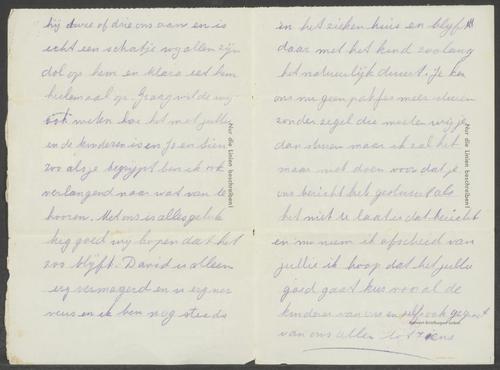 hij twee of drie ons aan en is
echt een schatje wy allen zijn
dol op hem en Klara eet hem
helemaal op. Graag wilde wy
ook weten hoe het met jullie
en de kinderen is en Jo en Sien
zoo als je begrypt ben ik ook
verlangend naar wat van te
hooren. Met ons is alles geluk
kig goed wy hopen dat het
zoo blijft. David is alleen
erg vermagerd en is erg ner
veus en ik ben nog steeds
Nur die Linien beschreiben!
in het zieken huis en blyf
daar met het kind zoo lang
het natuurlijk duurt. Je kan
ons nu geen pakjes meer sturen
zonder zegel die moeten wij je
dan sturen maar ik zal het
maar niet doen voor dat je
ons bericht het gebeurt als
het niet te laat is dat bericht
en nu neem ik afscheid van
jullie ik hoop dat het jullie
goed gaat kus vooral de
kinderen van ons en zelf ook gegroet
van ons allen tot ziens
Nur die Linien beschreiben!